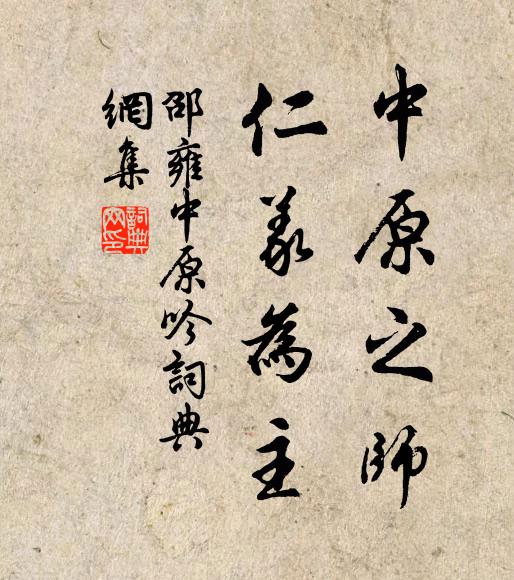 中原之師
仁義為主
邵雍中原吟詞典
網集
詞典
網印